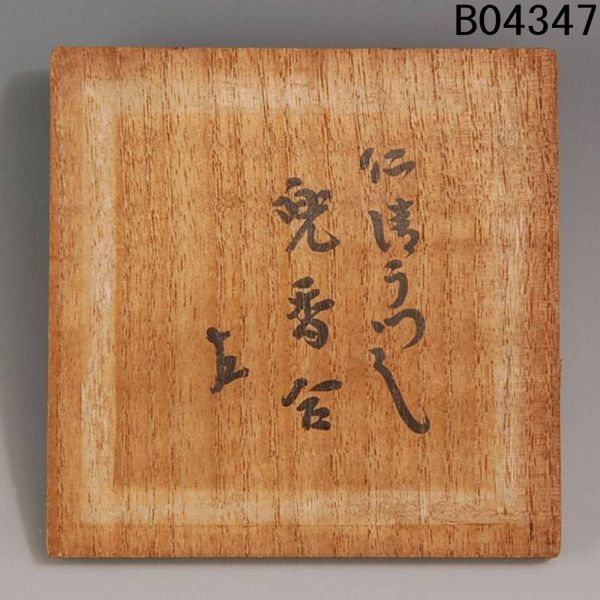 B04347
仁清うつし
兜香合
左